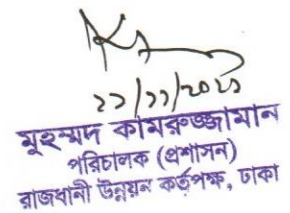 ২১/১১/২০২১
মুহম্মদ কামরুজ্জামান
পরিচালক (প্রশাসন)
রাজধানী উন্নয়ন কর্তৃপক্ষ, ঢাকা